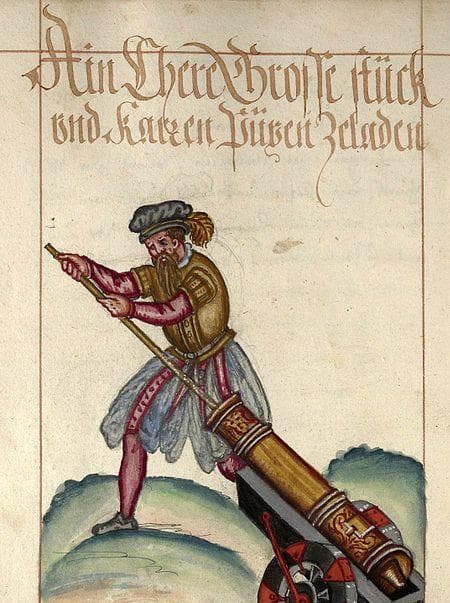 Ain Lhere Grosse stück
vnd Karren Püxen Zeladen